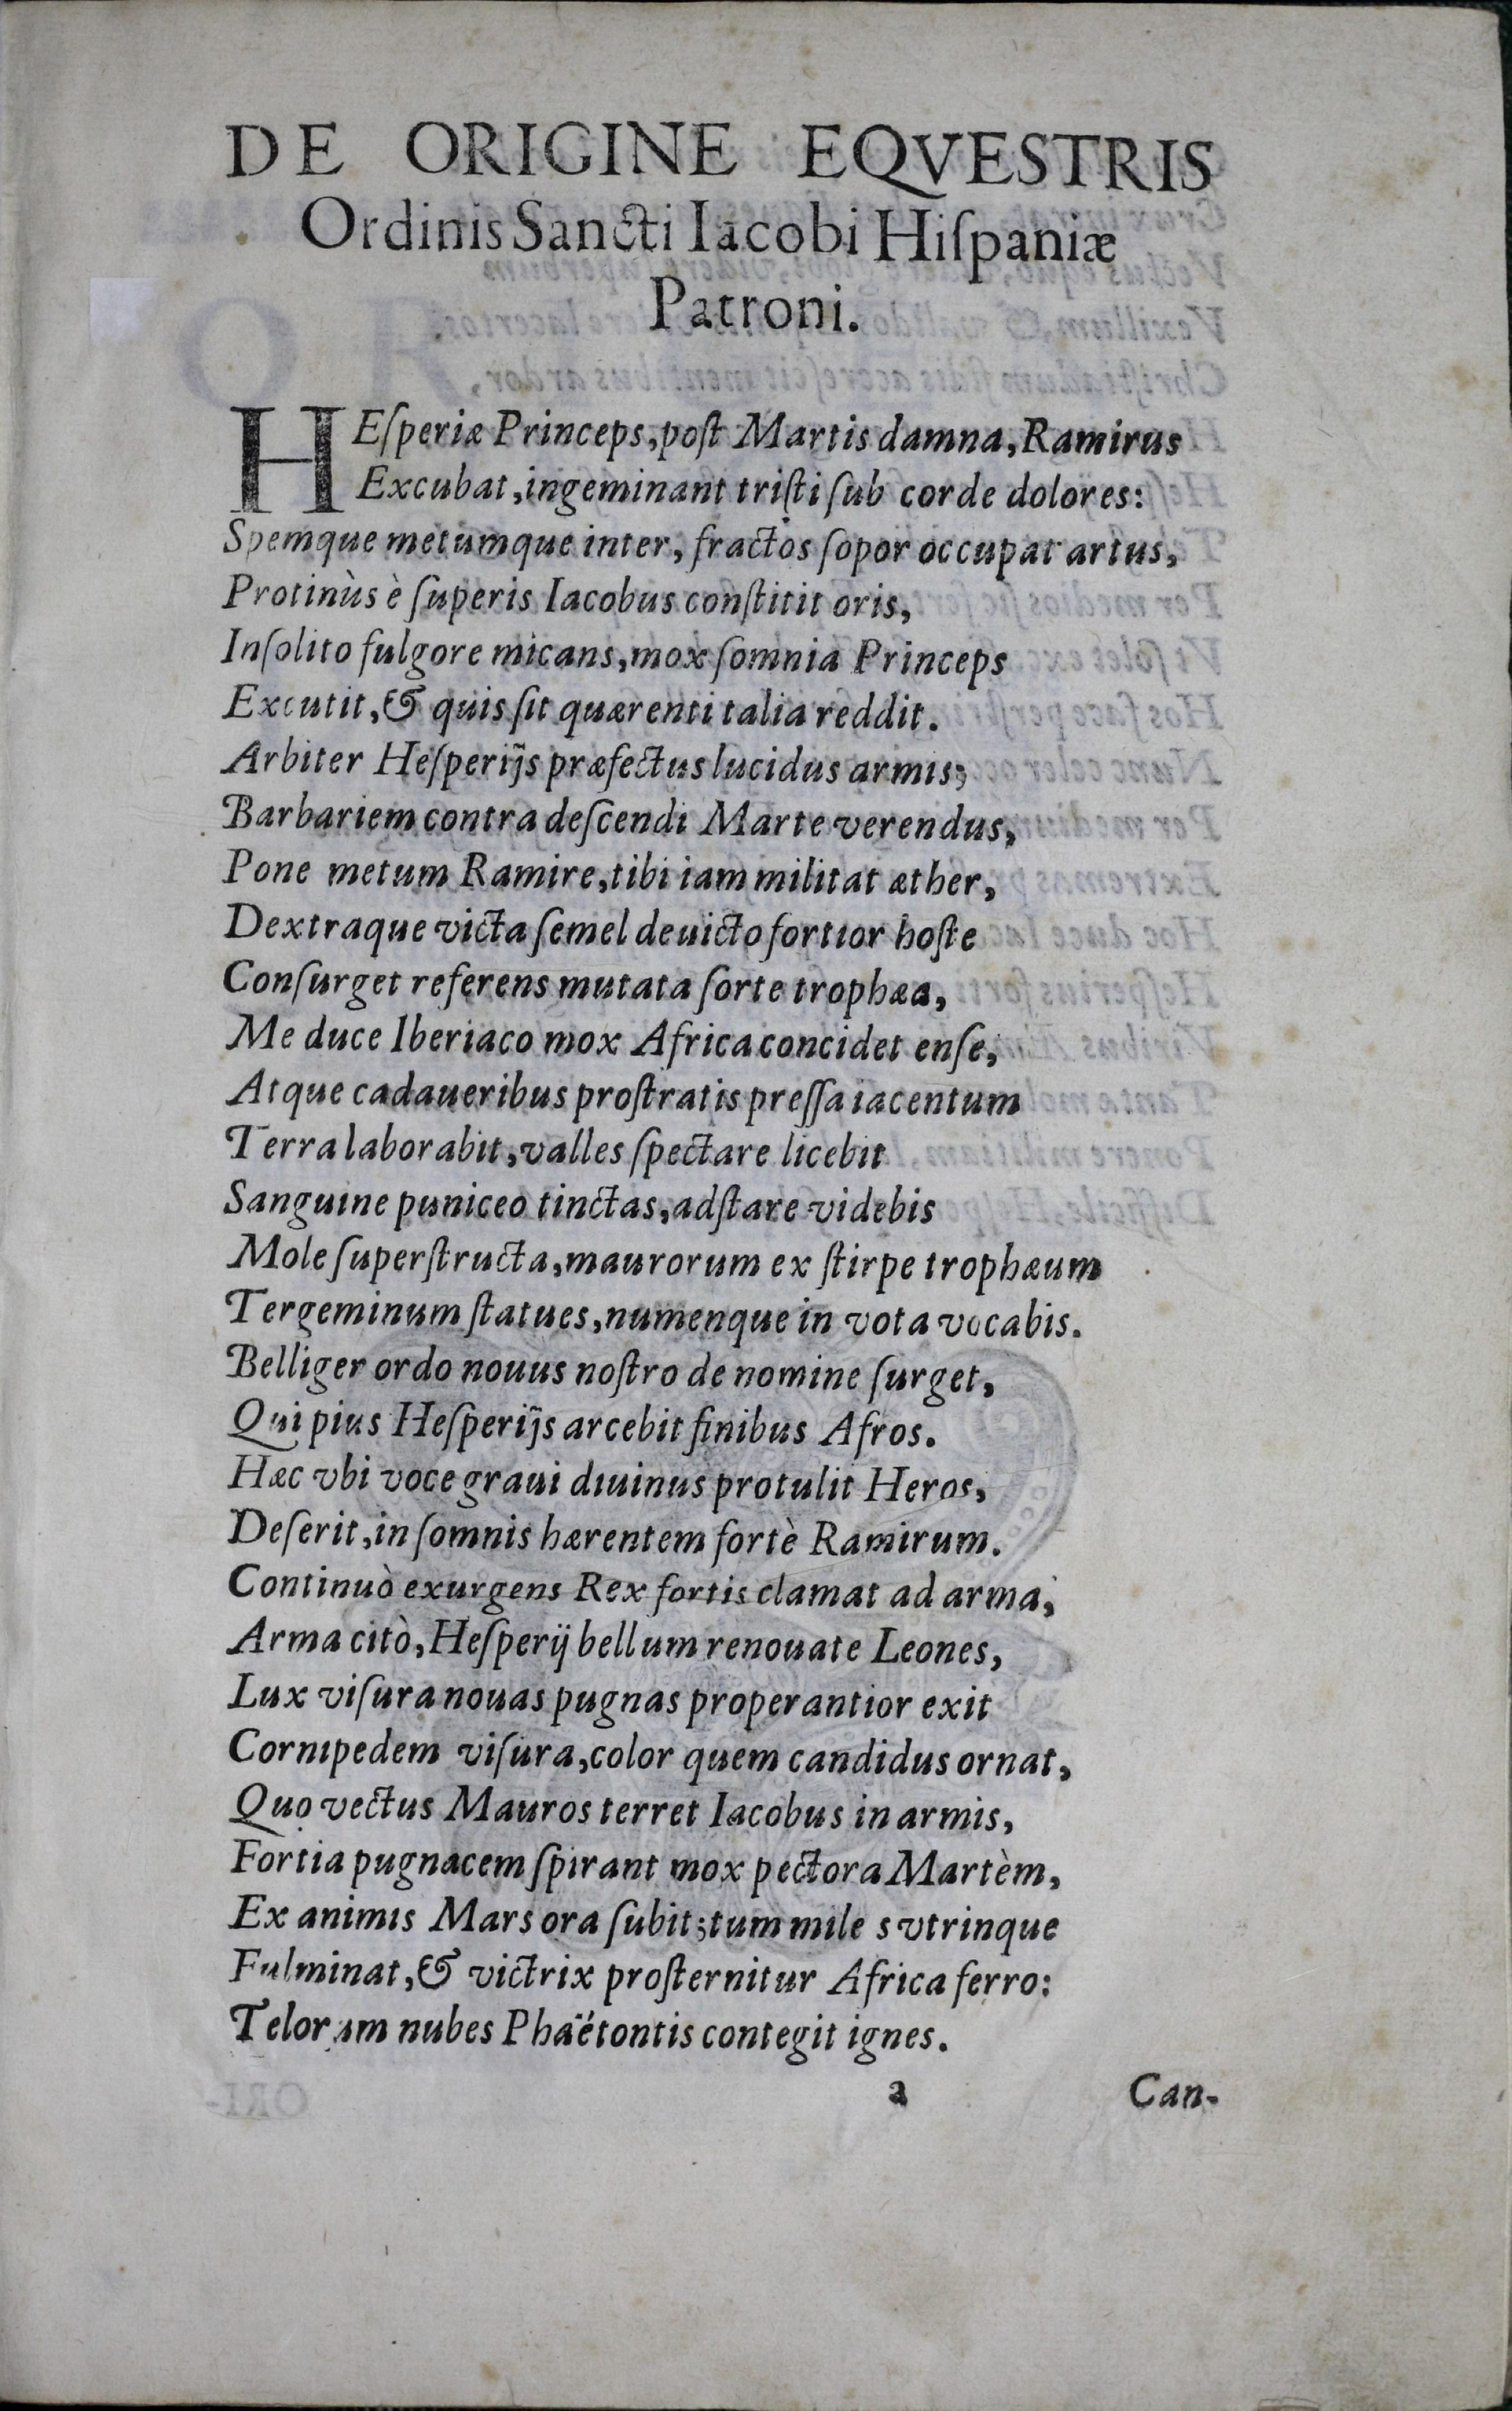 DE ORIGINE EQVESTRIS
Ordinis Sancti Iacobi Hiſpaniæ
Patroni.
HEſperiæ Princeps, poſt Martis damna, Ramirus
Excubat, ingeminant triſti ſub corde dolores:
Spemque metumque inter, fractos ſopor occupat artus,
Protinùs è ſuperis Iacobus conſtitit oris,
Inſolito fulgore micans, mox ſomnia Princeps
Excutit, & quis ſit quærenti talia reddit.
Arbiter Heſperijs præfectus lucidus armis;
Barbariem contra deſcendi Marte verendus,
Pone metum Ramire, tibi iam militat æther,
Dextraque victa ſemel deuicto fortior hoſte
Conſurget referens mutata ſorte trophæa,
Me duce Iberiaco mox Africa concidet enſe,
Atque cadaueribus proſtratis preſſa iacentum
Terra laborabit, valles ſpectare licebit
Sanguine puniceo tinctas, adſtare videbis
Mole ſuperſtructa, maurorum ex ſtirpe trophæum
Tergeminum ſtatues, numenque in vota vocabis.
Belliger ordo nouus noſtro de nomine ſurget,
Qui pius Heſperijs arcebit finibus Afros.
Hæc vbi voce graui diuinus protulit Heros,
Deſerit, in ſomnis hærentem fortè Ramirum.
Continuò exurgens Rex fortis clamat ad arma,
Arma citò, Heſperij bellum renouate Leones,
Lux viſura nouas pugnas properantior exit
Cornipedem viſura, color quem candidus ornat,
Quo vectus Mauros terret Iacobus in armis,
Fortia pugnacem ſpirant mox pectora Martèm,
Ex animis Mars ora ſubit; tum mile s vtrinque
Fulminat, & victrix proſternitur Africa ferro:
Telorum nubes Phaëtontis contegit ignes.
a Can-